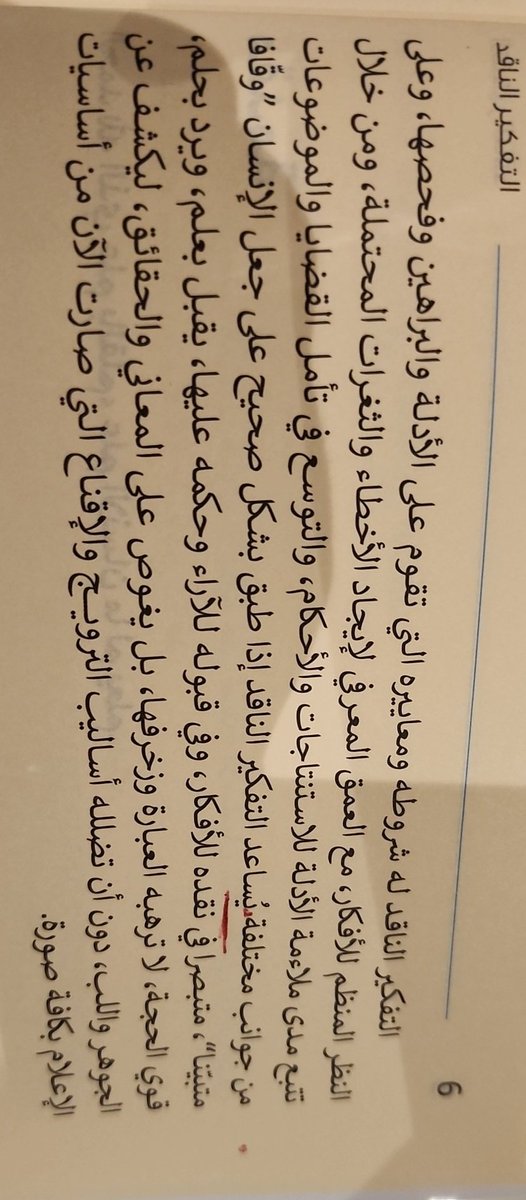 التفكير الناقد
6
التفكير الناقد له شروطه ومعاييره التي تقوم على الأدلة والبراهين وفحصها، وعلى
النظر المنظم للأفكار، مع العمق المعرفي لإيجاد الأخطاء والثغرات المحتملة، ومن خلال
تتبع مدى ملاءمة الأدلة للاستنتاجات والأحكام، والتوسع في تأمل القضايا والموضوعات
من جوانب مختلفة، يُساعد التفكير الناقد إذا طبق بشكل صحيح على جعل الإنسان "وقّافا
متبيّنا"، متبصرا في نقده للأفكار، وفي قبوله للآراء وحكمه عليها، يقبل بعلم، ويرد بحلم،
قوي الحجة، لا ترهبه العبارة وزخرفها، بل يغوص على المعاني والحقائق، ليكشف عن
الجوهر واللب، دون أن تضلله أساليب الترويج والإقناع التي صارت الآن من أساسيات
الإعلام بكافة صورة.